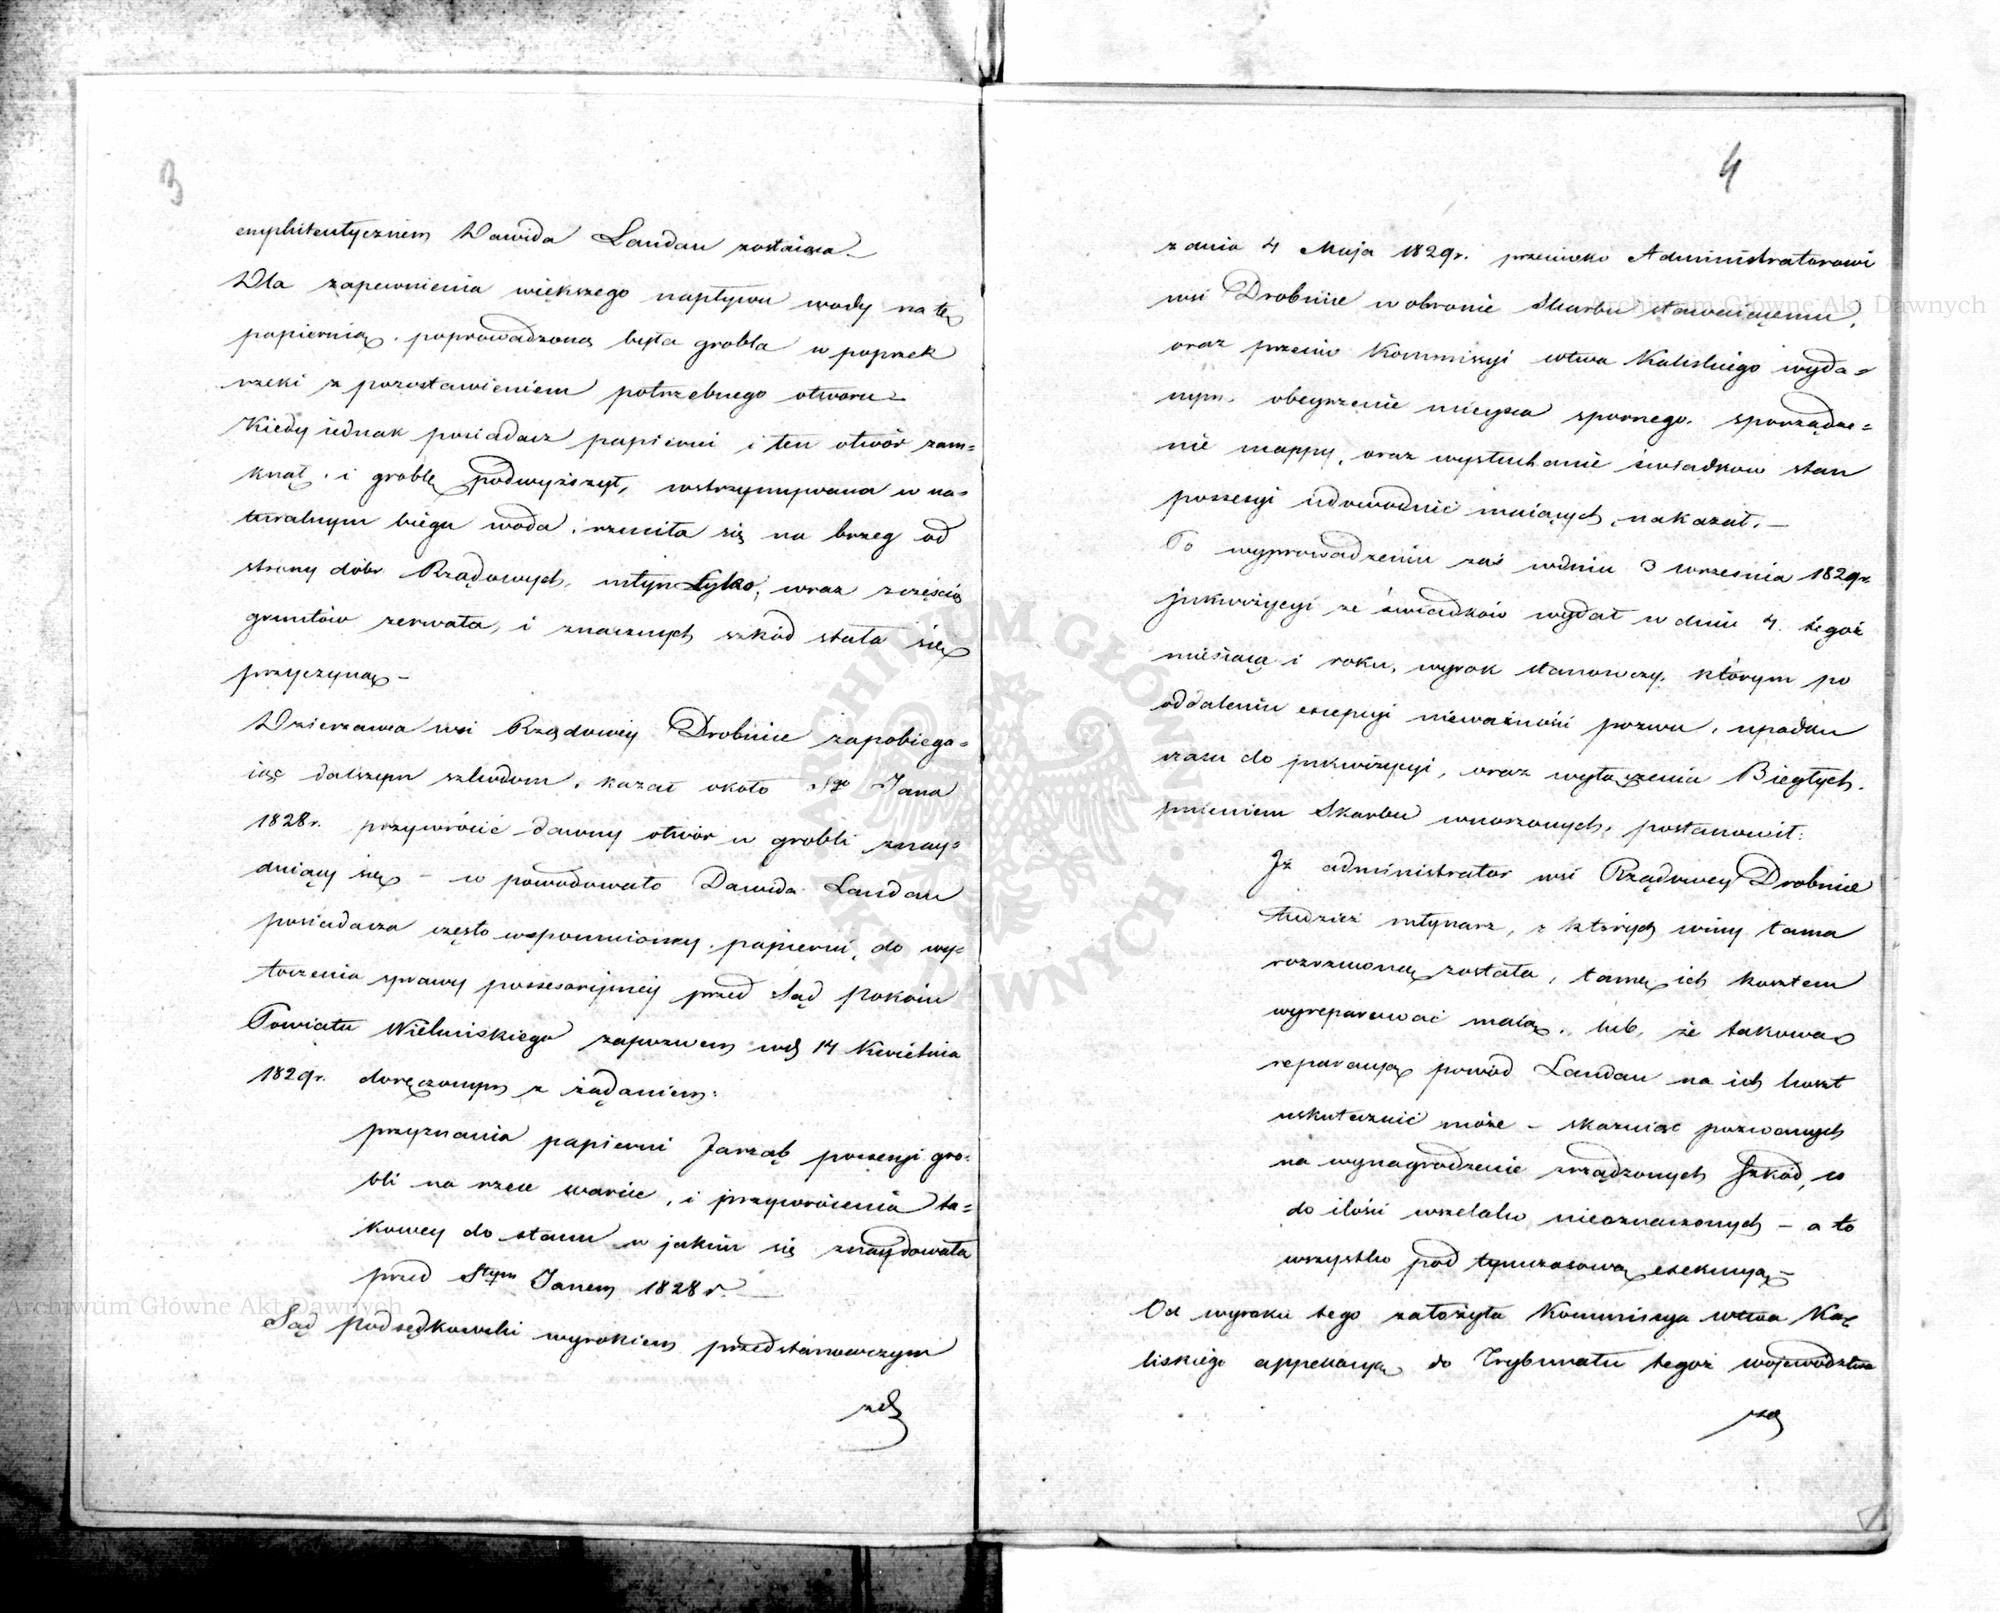 3
emphiteutycznem Dawida Landau zostaiąca
Dla zapewnienia większego napływu wody na tę
papiernią, poprowadzoną była grobla w poprzek
rzeki z pozostawieniem potrzebnego otworu
Kiedy iednak posiadacz papierni i ten otwór zam=
knął, i groblę podwyższył, wstrzymywana w na=
turalnym biegu woda, rzuciła się na brzeg od
strony dóbr Rządowych, młyn tylko, wraz z częścią
gruntów zerwała, i znacznych szkód stała się
przyczyną –
Dzierzawca wsi Rządowey Drobnice zapobiega=
iąc dalszym szkodom, kazał około Sgo Jana
1828r. przywrócić dawny otwór w grobli znay=
duiący się – co powodowało Dawida Landau
posiadacza często wspomnioney papierni, do wy=
toczenia sprawy possesoryiney przed Sąd Pokoiu
Powiatu Wieluńskiego zapozwem wd 14 Kwietnia
1829r. doręczonym z żądaniem:
przyznania papierni Jarząb possessyi gro=
bli na rzece warcie, i przywrócenia ta=
kowey do stanu w jakim się znaydowała
przed Stym Janem 1828 r. –
Sąd podsędkowski wyrokiem przedstanowczym
zd
4
z dnia 4 Maja 1829r. przeciwko Administratorowi
wsi Drobnice w obronie Skarbu stawaiącemu,
oraz przeciw Kommissyi wtwa Kaliskiego wyda=
nym, obeyrzenie mieysca spornego, sporządze=
nie mappy, oraz wysłuchanie świadkow stan
possessyi udowodnić maiących, nakazał. –
Po wyprowadzeniu zaś wdniu 3 wrzesnia 1829r.
jnkwizycyi ze świadków wydał w dniu 4. tegoż
miesiąca i roku, wyrok stanowczy, którym po
oddaleniu excepcyi nieważności pozwu, upadku
czasu do jnkwizycyi, oraz wyłączenia Biegłych,
jmieniem Skarbu wnoszonych, postanowił:
Jż administrator wsi Rządowey Drobnice
tudzież młynarz, z których winy tama
rozrzuconą została, tamę ich kosztem
wyreparować maią, lub, że takową
reparacyą powód Landau na ich koszt
uskutecznić może – skazuiąc pozwanych
na wynagrodzenie zrządzonych szkód, co
do ilości wszelako nieoznaczonych – a to
wszystko pod tymczasową exekucyą –
Od wyroku tego założyła Kommissya wtwa Ka=
liskiego appellacyą do Trybunału tegoż województwa
zd
Archiwum Główne Akt Dawnych
Archiwum Główne Akt Dawnych
ARCHIWUM GŁÓWNE AKT DAWNYCH